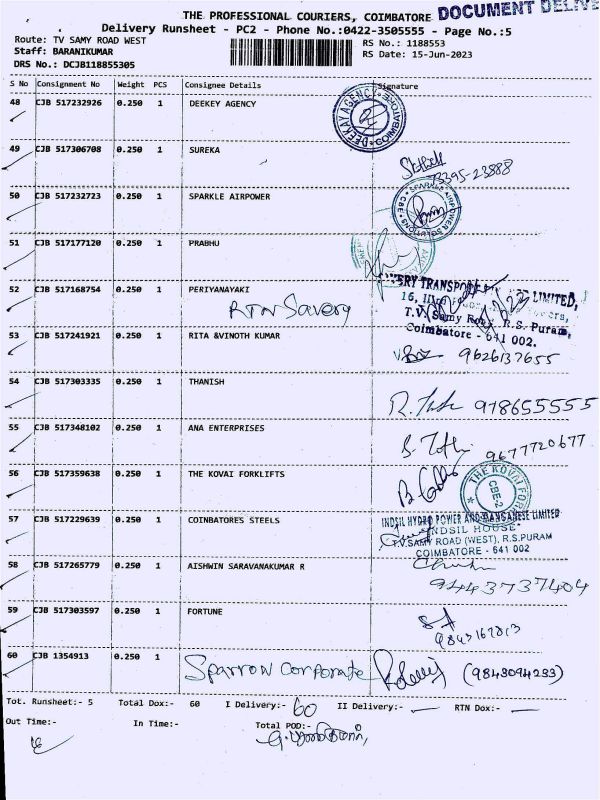 THE PROFESSIONAL COURIERS, COIMBATORE
DOCUMENT DELIVE
Delivery Runsheet - PC2 - Phone No.:0422-3505555 - Page No.:5
Route: TV SAMY ROAD WEST
RS No.: 1188553
Staff: BARANIKUMAR
RS Date: 15-Jun-2023
DRS No.: DCJB118855305
S No Consignment No Weight PCS Consignee Details Signature
48 CJB 517232926 0.250 1 DEEKEY AGENCY
DEEKAY AGENCY COIMBATORE
49 CJB 517306708 0.250 1 SUREKA
73395-23888
50 CJB 517232723 0.250 1 SPARKLE AIRPOWER
51 CJB 517177120 0.250 1 PRABHU
52 CJB 517168754 0.250 1 PERIYANAYAKI
RTN Savery
LIMITED,
T.V. Samy Road, R.S. Puram,
Coimbatore - 641 002.
53 CJB 517241921 0.250 1 RITA &VINOTH KUMAR
9626137655
54 CJB 517303335 0.250 1 THANISH
978655555
55 CJB 517348102 0.250 1 ANA ENTERPRISES
9677720677
56 CJB 517359638 0.250 1 THE KOVAI FORKLIFTS
THE KOVAI FOR
CBE-2
57 CJB 517229639 0.250 1 COINBATORES STEELS
INDSIL HYDRO POWER AND MANGANESE LIMITED
INDSIL HOUSE
T.V.SAMY ROAD (WEST), R.S.PURAM
COIMBATORE - 641 002
58 CJB 517265779 0.250 1 AISHWIN SARAVANAKUMAR R
9443737404
59 CJB 517303597 0.250 1 FORTUNE
9843167813
60 CJB 1354913 0.250 1 Sparrow Corporate
(9843094233)
Tot. Runsheet:- 5 Total Dox:- 60 I Delivery:- 60 II Delivery:- — RTN Dox:- —
Out Time:- In Time:- Total POD:-